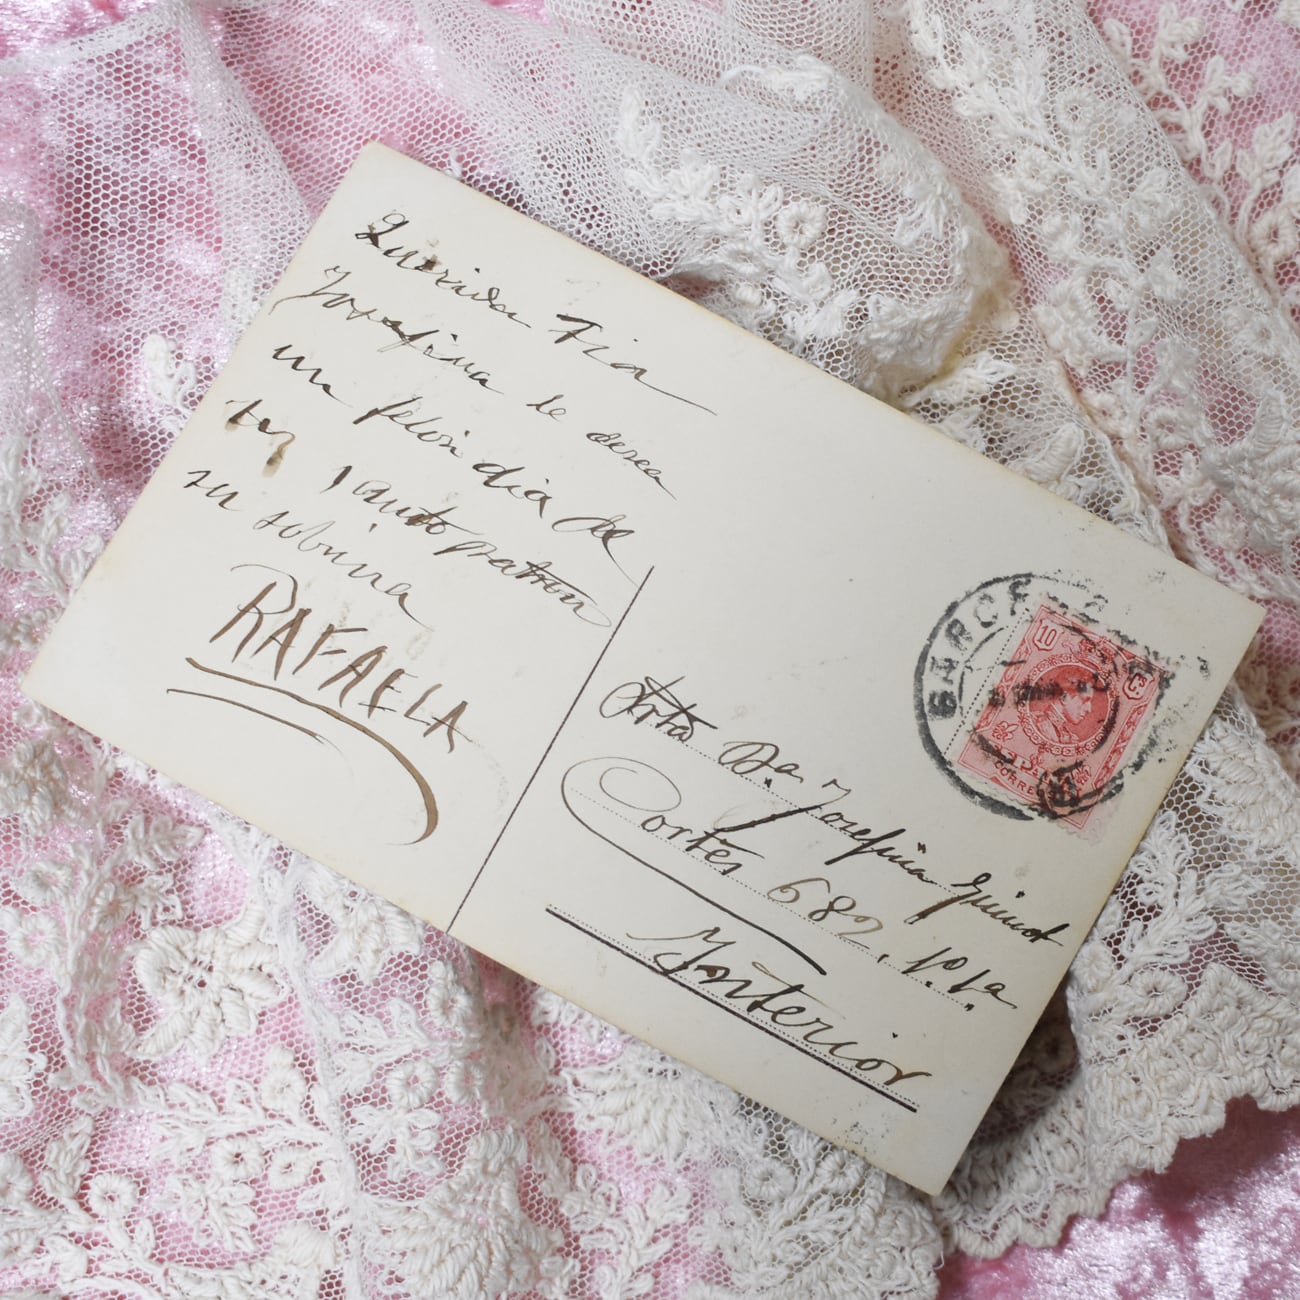 Querida Tia
Josefina le desea
un felis dia de
tu Santo patron
su sobrina
RAFAELA
BARCELONA
10 Cs
CORREOS
Srta Da. Josefina Guinot
Cortes 682, 1º 1ª
Interior